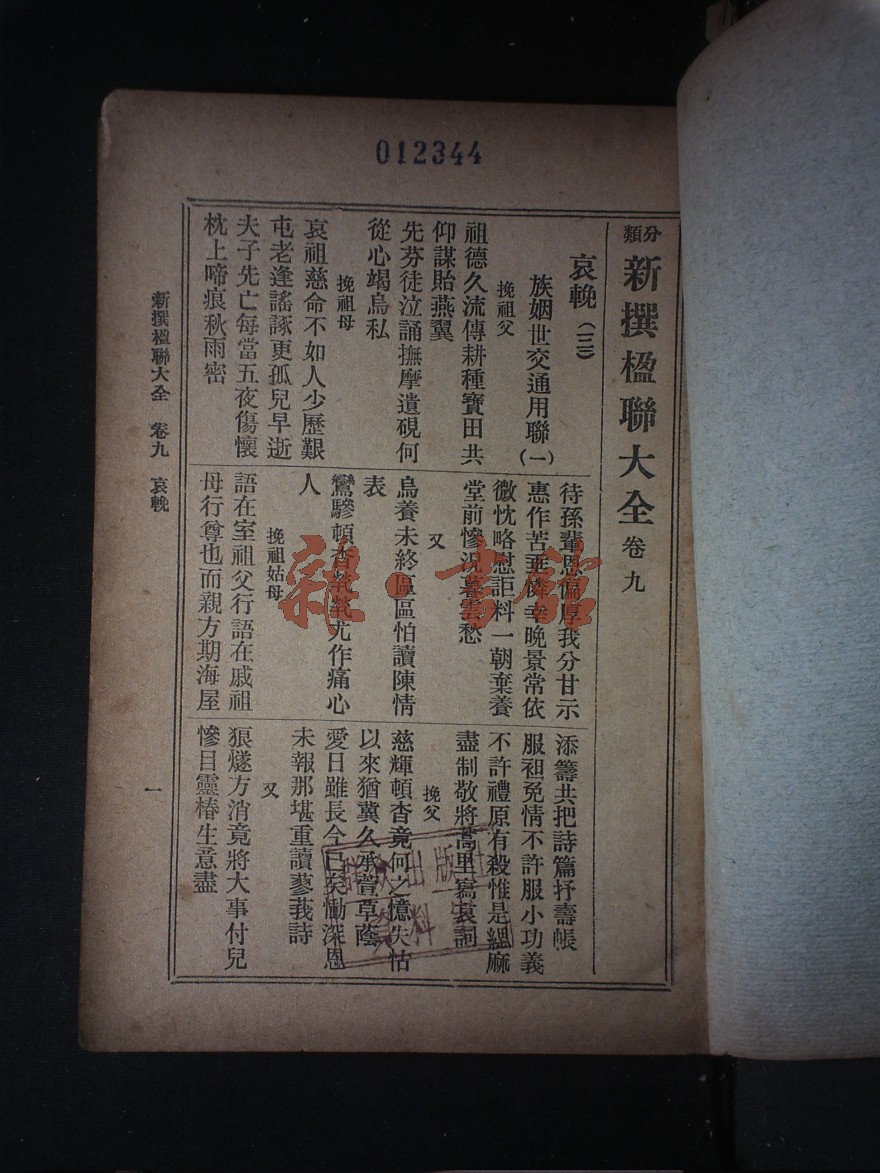 012344
分類
新撰楹聯大全 卷九
哀輓(三)
族姻世交通用聯(一)
挽祖父
祖德久流傳耕種寶田共
仰謀貽燕翼
先芬徒泣誦撫摩遺硯何
從心竭烏私
挽祖母
哀祖慈命不如人少歷艱
屯老逢謠諑更孤兒早逝
夫子先亡每當五夜傷懷
枕上啼痕秋雨密
待孫輩恩偏厚我分甘示
惠作苦垂憐幸晚景常依
微忱略慰詎料一朝棄養
堂前慘況暮雲愁
又
烏養未終區區怕讀陳情
表
鸞驂頓杳煢煢尤作痛心
人
挽祖姑母
語在室祖父行語在戚祖
母行尊也而親方期海屋
添籌共把詩篇抒壽帳
服袒免情不許服小功義
不許禮原有殺惟是緦麻
盡制敬將蒿里寫哀詞
挽父
慈輝頓杳竟何之憶失怙
以來猶冀久承萱草蔭
愛日雖長今已矣慟深恩
未報那堪重讀蓼莪詩
又
狼燧方消竟將大事付兒
慘目靈椿生意盡
新撰楹聯大全 卷九 哀輓
一
雜·書館
出版社
料